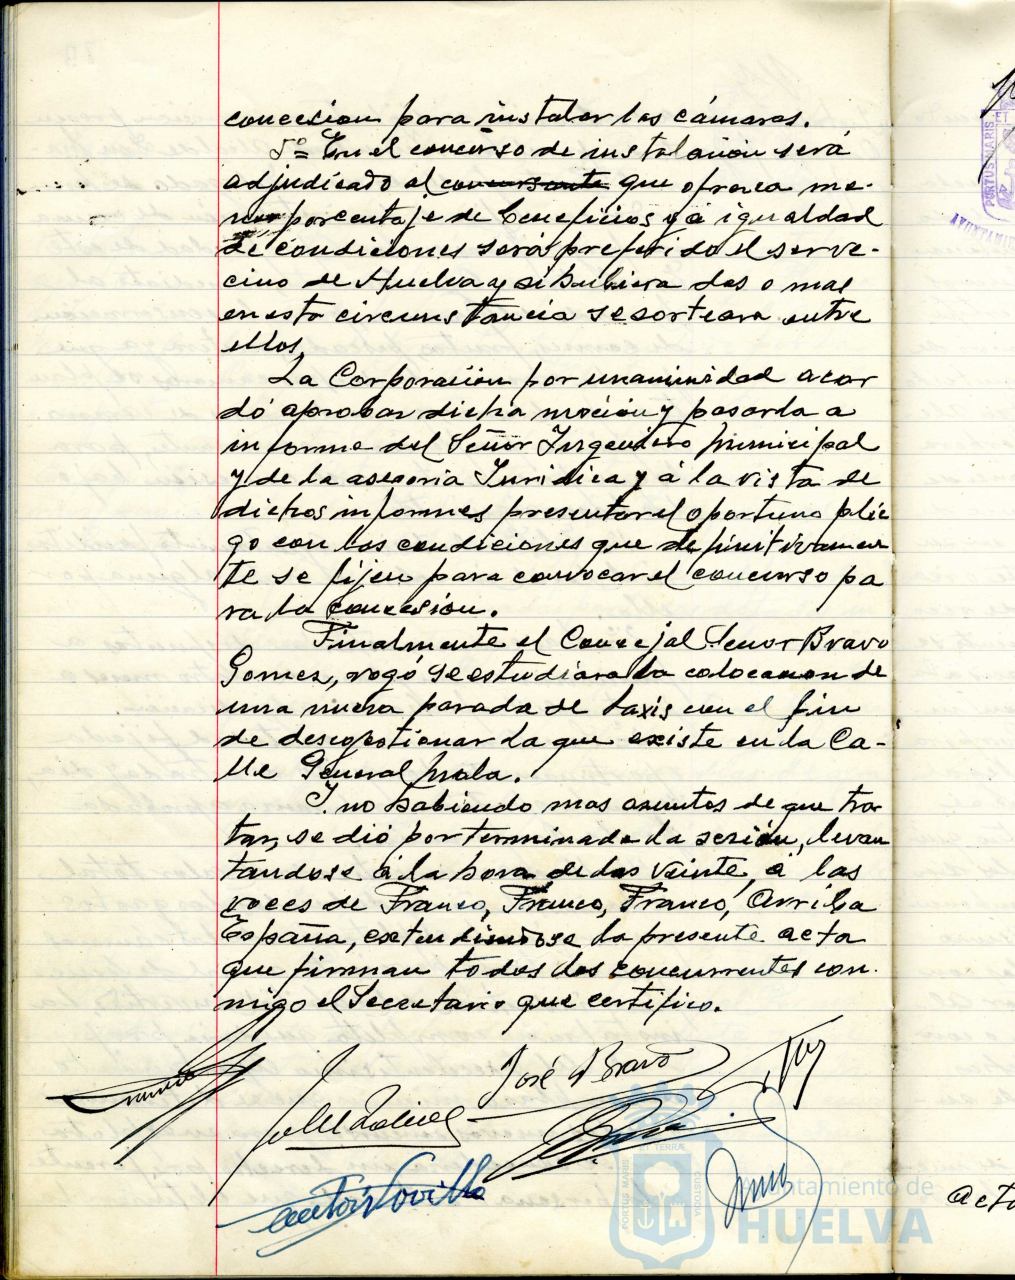 concesion para instalar las cámaras.
5º= En el concurso de instalación será
adjudicado al concursante que ofrezca me-
nor porcentaje de beneficios y á igualdad
de condiciones será preferido el ser ve-
cino de Huelva y si hubiera dos o mas
en esta circunstancia se sorteara entre
ellos.
La Corporación por unanimidad acor
dó aprobar dicha moción y pasarla a
informe del Señor Ingeniero municipal
y de la asesoria Juridica y á la vista de
dichos informes presentar el oportuno plie
go con las condiciones que definitivamen
te se fijen para convocar el concurso pa
ra la concesión.
Finalmente el Concejal Senor Bravo
Gomez, rogó se estudiara la colocacion de
una nueva parada de taxis con el fin
de descogestionar la que existe en la Ca-
lle General Mola.
Y no habiendo mas asuntos de que tra
tar, se dió por terminada la sesión, levan
tandose á la hora de las veinte, á las
voces de Franco, Franco, Franco, Arriba
España, extendiendose la presente acta
que firman todos los concurrentes con-
migo el Secretario que certifico.
José Bravo
PORTUS MARIS
ET TERRAE
CUSTODIA
Ayuntamiento de
HUELVA
Acta